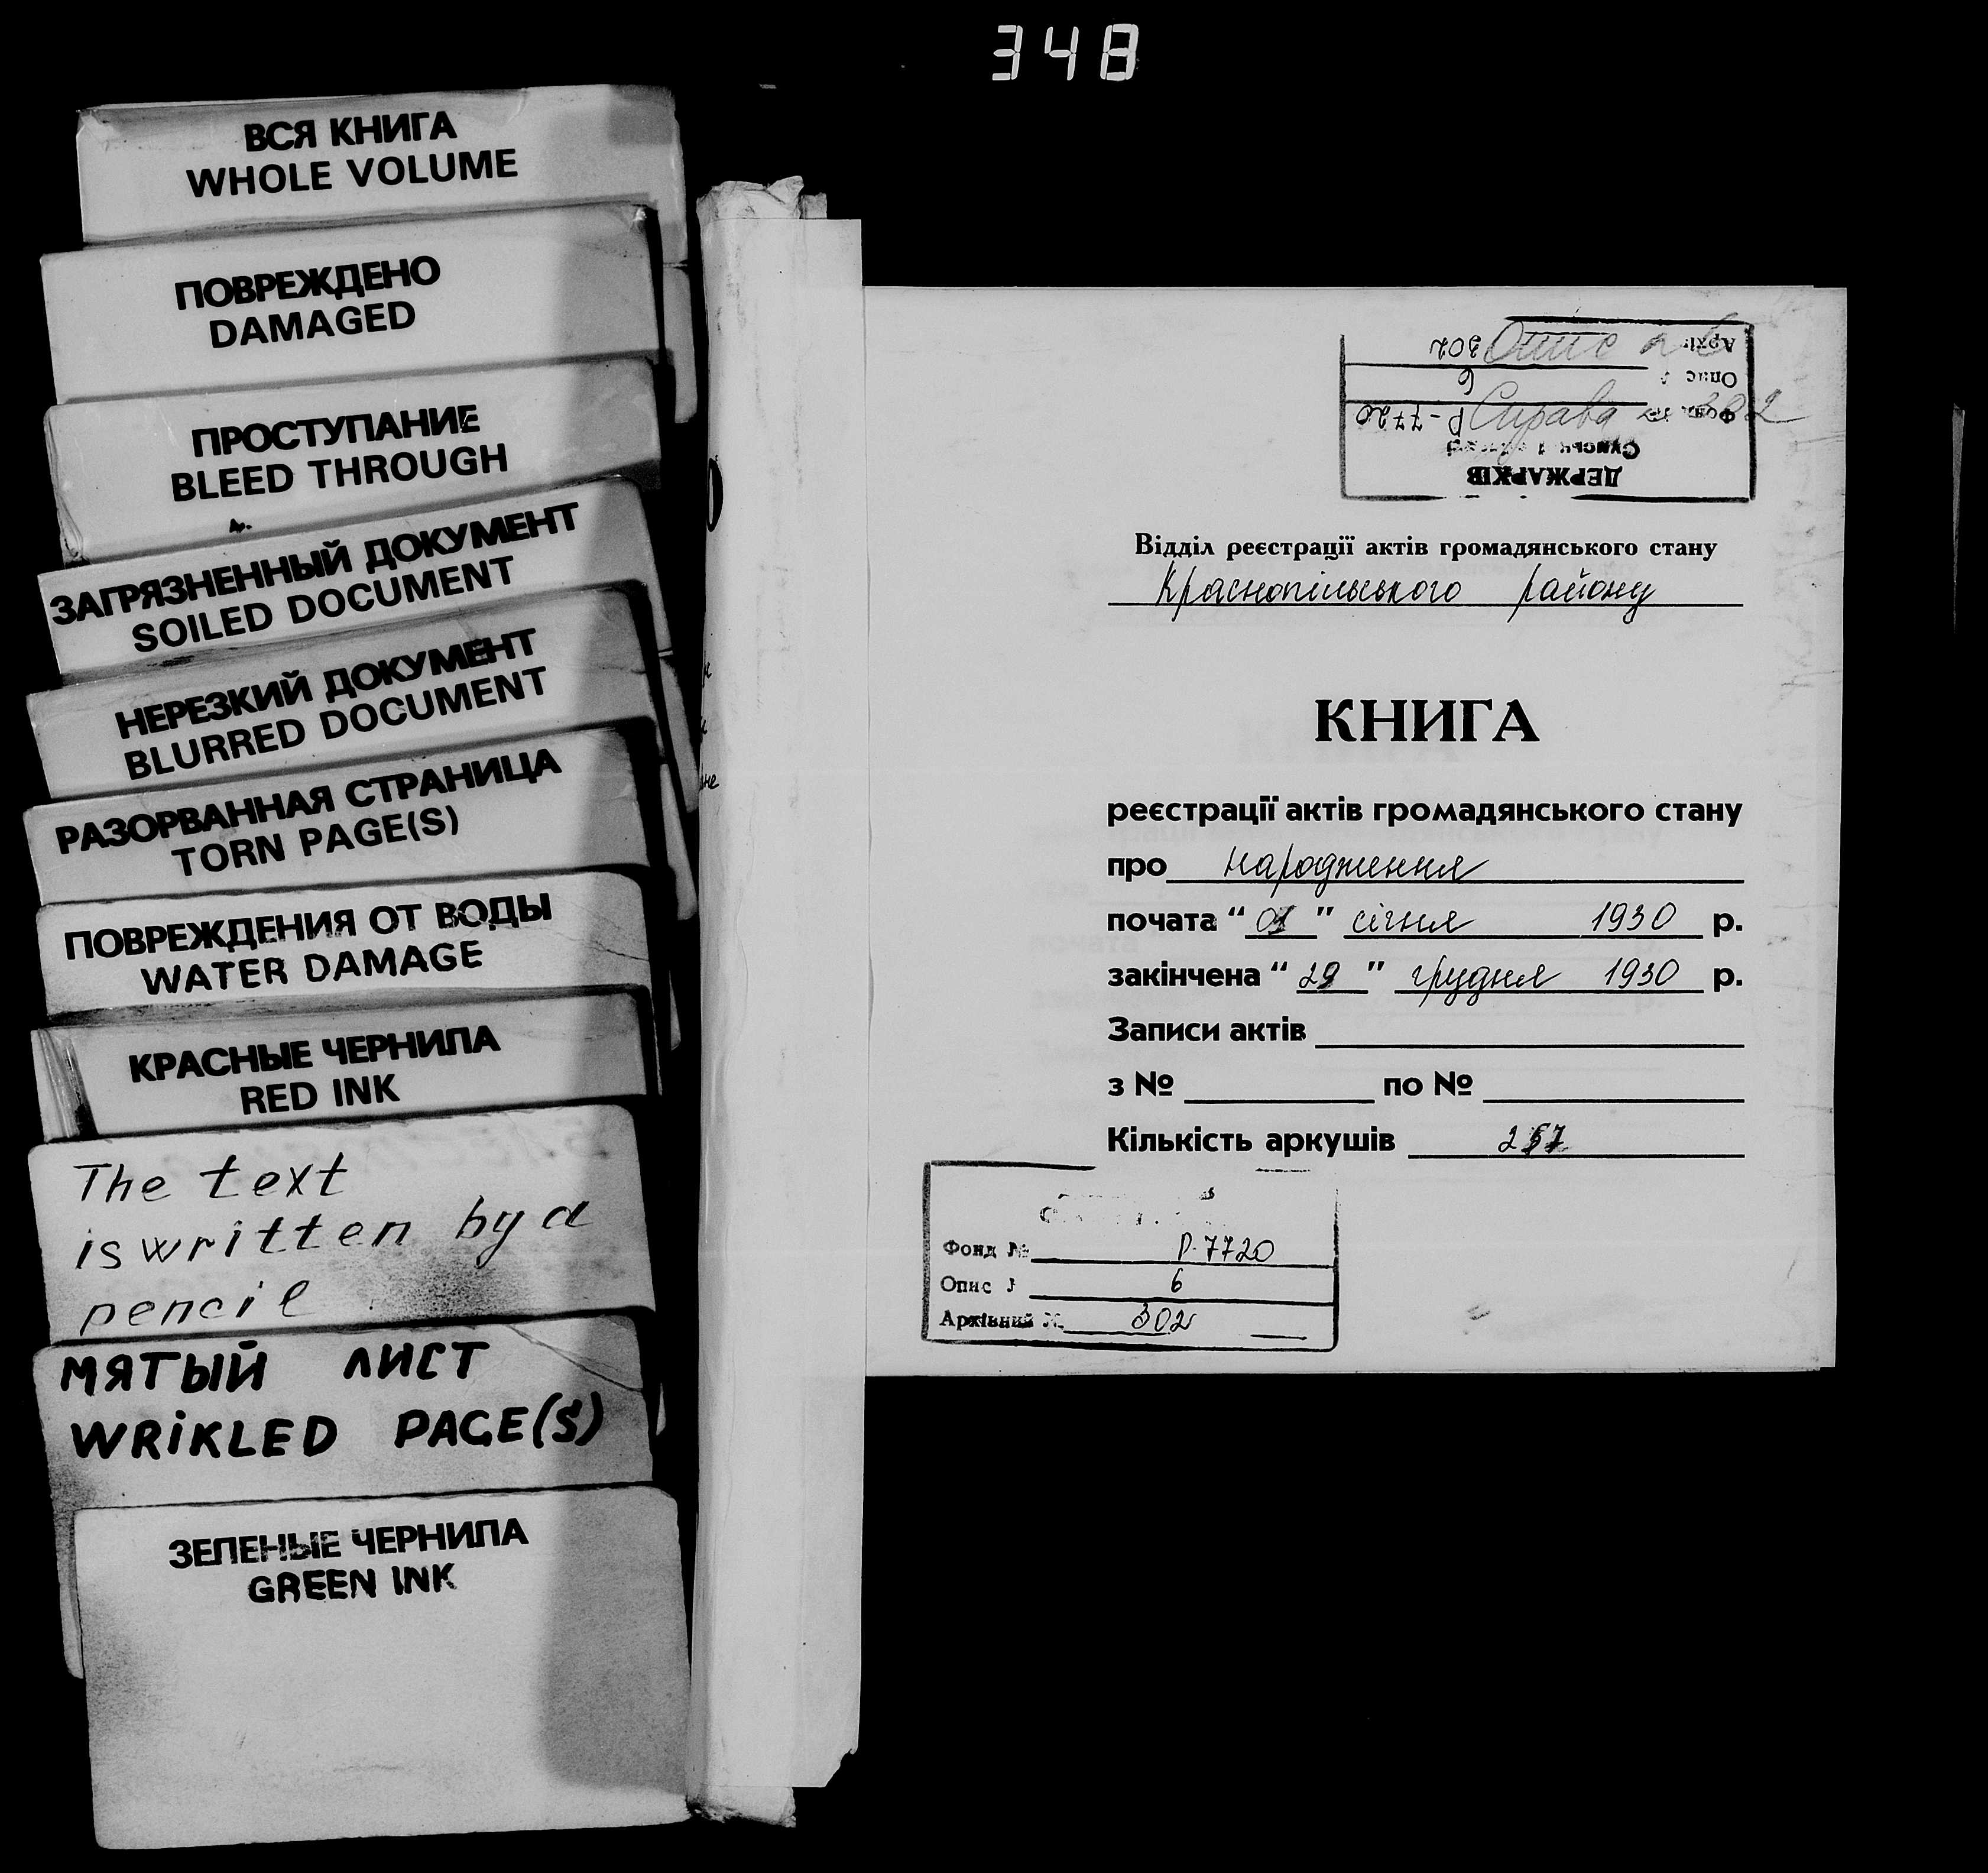 348
ВСЯ КНИГА
WHOLE VOLUME
ПОВРЕЖДЕНО
DAMAGED
ПРОСТУПАНИЕ
BLEED THROUGH
ЗАГРЯЗНЕННЫЙ ДОКУМЕНТ
SOILED DOCUMENT
НЕРЕЗКИЙ ДОКУМЕНТ
BLURRED DOCUMENT
РАЗОРВАННАЯ СТРАНИЦА
TORN PAGE(S)
ПОВРЕЖДЕНИЯ ОТ ВОДЫ
WATER DAMAGE
КРАСНЫЕ ЧЕРНИЛА
RED INK
The text
is written by a
pencil
МЯТЫЙ ЛИСТ
WRiKLED PAGE(S)
ЗЕЛЕНЫЕ ЧЕРНИЛА
GREEN INK
Опис 6
Справа 302
ДЕРЖАРХІВ
Фонд № Р-7720
Опис 6
302
Відділ реєстрації актів громадянського стану
Краснопільського району
КНИГА
реєстрації актів громадянського стану
про народження
почата “ 01 ” січня 1930 р.
закінчена “ 29 ” грудня 1930 р.
Записи актів
з № по №
Кількість аркушів
Фонд № Р-7720
Опис 6
Архівний № 302